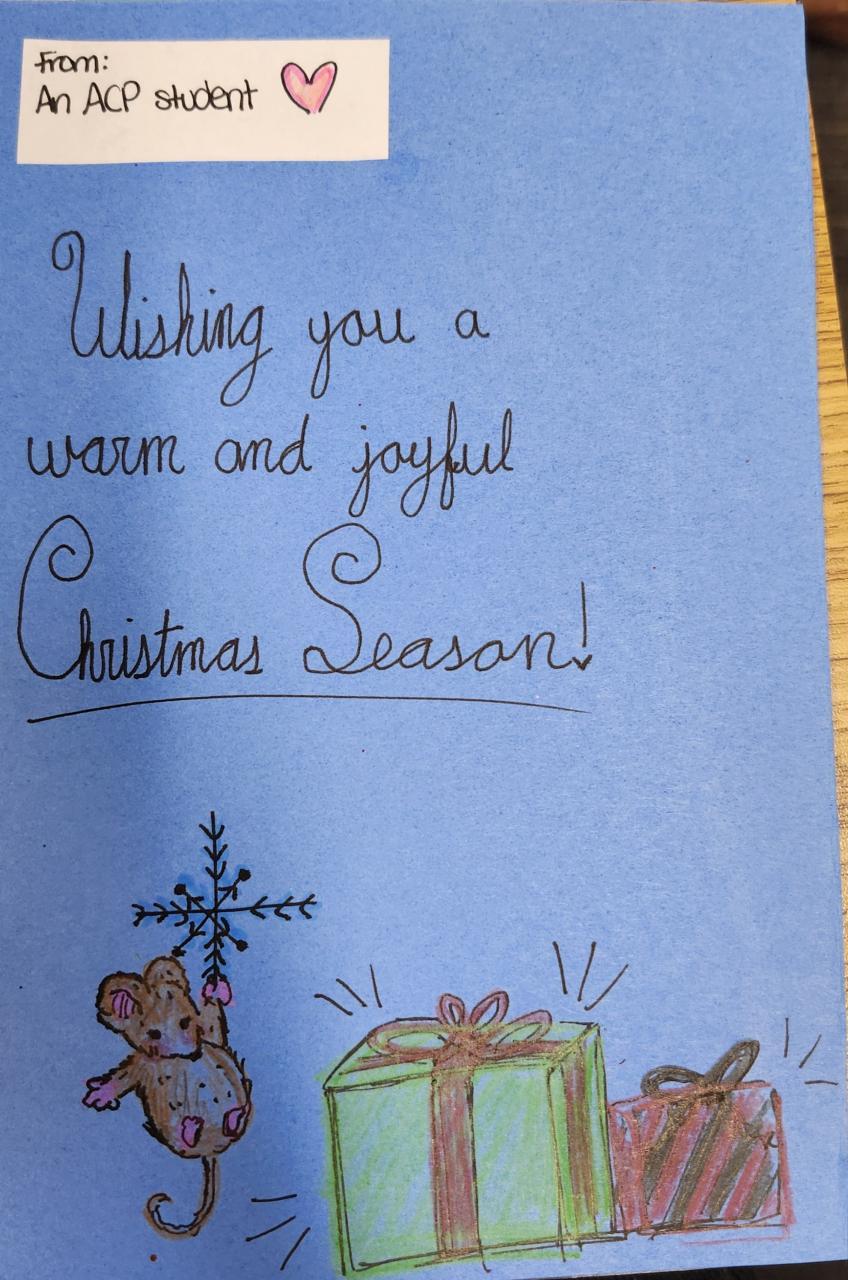 From:
An ACP student
Wishing you a
warm and joyful
Christmas Season!